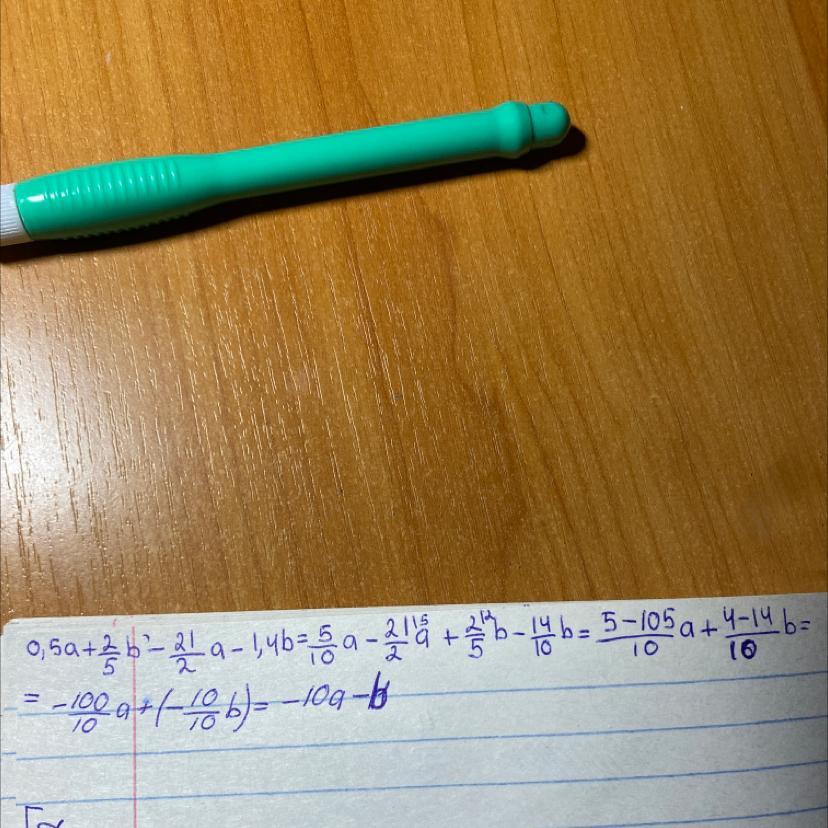 0,5a+2/5 b-21/2 a-1,4b=5/10 a-21/2|5 a+2/5|2 b-14/10 b=5-105/10 a+4-14/10 b=
=-100/10 a+(-10/10 b)=-10a-b